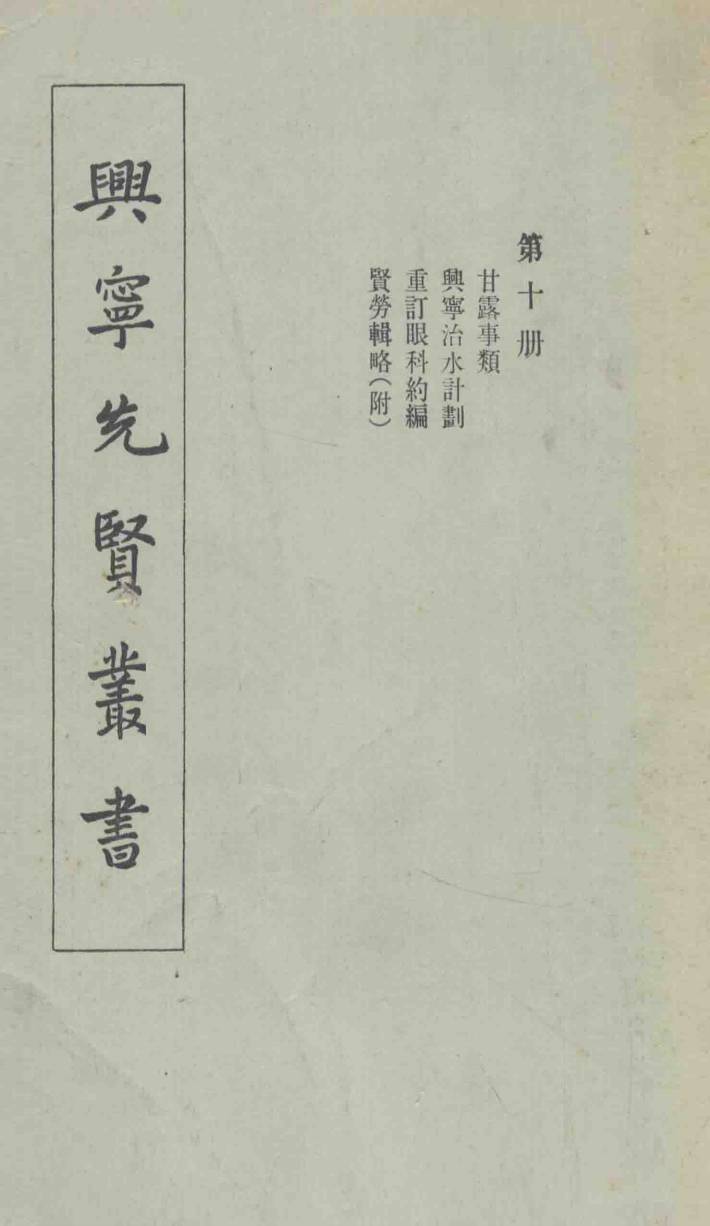 第十册
甘露事類
興寧治水計劃
重訂眼科約編
賢勞輯略（附）
興寧先賢叢書